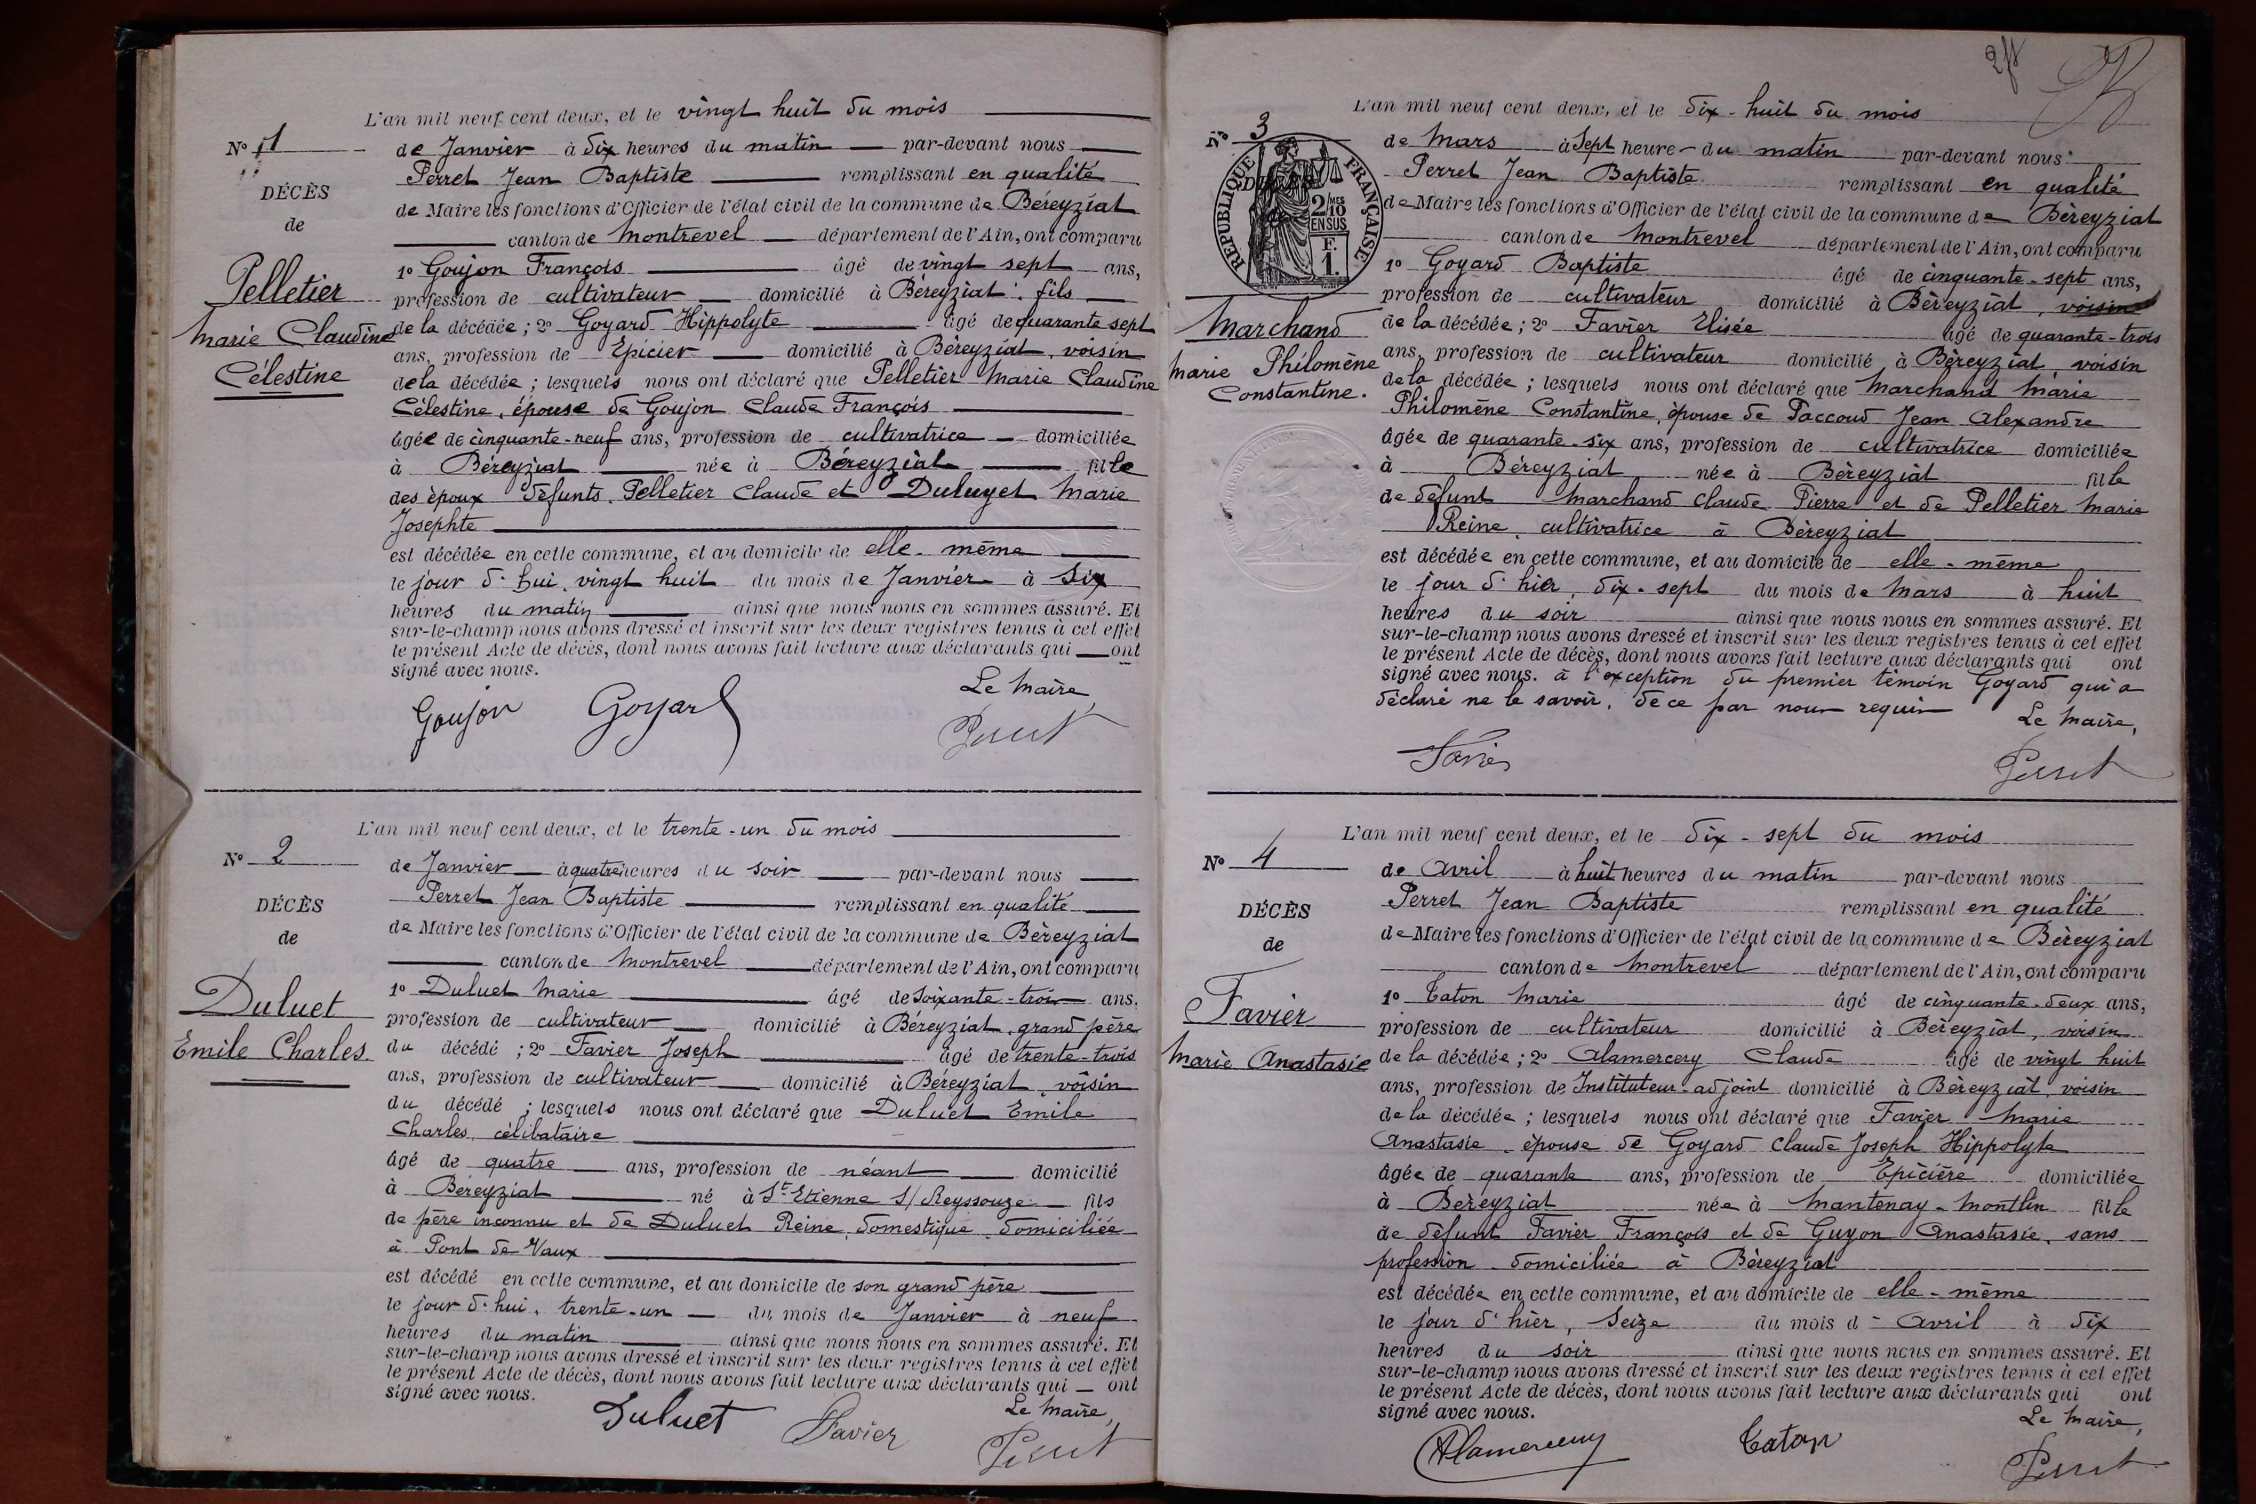 L'an mil neuf cent deux, et le vingt huit du mois
No 1
de Janvier à dix heures du matin par-devant nous
Perret Jean Baptiste remplissant en qualité
DÉCÈS
de Maire les fonctions d'Officier de l'état civil de la commune de Béreyziat
de
canton de Montrevel département de l'Ain, ont comparu
1o Goujon François âgé de vingt sept ans,
Pelletier
profession de cultivateur domicilié à Béreyziat, fils
Marie Claudine
de la décédée; 2o Goyard Hippolyte âgé de quarante sept
ans, profession de Epicier domicilié à Béreyziat, voisin
Célestine
de la décédée; lesquels nous ont déclaré que Pelletier Marie Claudine
Célestine, épouse de Goujon Claude François
âgée de cinquante-neuf ans, profession de cultivatrice domiciliée
à Béreyziat née à Béreyziat fille
des époux défunts Pelletier Claude et Duluyet Marie
Josephte
est décédée en cette commune, et au domicile de elle-même
le jour d'hui, vingt huit du mois de Janvier à six
heures du matin ainsi que nous nous en sommes assuré. Et
sur-le-champ nous avons dressé et inscrit sur les deux registres tenus à cet effet
le présent Acte de décès, dont nous avons fait lecture aux déclarants qui ont
signé avec nous.
Le Maire,
Goujon Goyard Perret
L'an mil neuf cent deux, et le trente-un du mois
No 2
de Janvier à quatre heures du soir par-devant nous
Perret Jean Baptiste remplissant en qualité
DÉCÈS
de Maire les fonctions d'Officier de l'état civil de la commune de Béreyziat
de
canton de Montrevel département de l'Ain, ont comparu
1o Duluet Marie âgé de soixante-trois ans,
Duluet
profession de cultivateur domicilié à Béreyziat, grand père
Emile Charles
du décédé; 2o Favier Joseph âgé de trente-trois
ans, profession de cultivateur domicilié à Béreyziat, voisin
du décédé; lesquels nous ont déclaré que Duluet Emile
Charles, célibataire
âgé de quatre ans, profession de néant domicilié
à Béreyziat né à St Etienne s/Reyssouze fils
de père inconnu et de Duluet Reine, domestique, domiciliée
à Pont de Vaux
est décédé en cette commune, et au domicile de son grand père
le jour d'hui, trente-un du mois de Janvier à neuf
heures du matin ainsi que nous nous en sommes assuré. Et
sur-le-champ nous avons dressé et inscrit sur les deux registres tenus à cet effet
le présent Acte de décès, dont nous avons fait lecture aux déclarants qui ont
signé avec nous.
Le Maire,
Duluet Favier Perret
L'an mil neuf cent deux, et le dix-huit du mois
No 3
de Mars à sept heure du matin par-devant nous
Perret Jean Baptiste remplissant en qualité
RÉPUBLIQUE FRANÇAISE
2/10
EN SUS
F.
1.
de Maire les fonctions d'Officier de l'état civil de la commune de Béreyziat
canton de Montrevel département de l'Ain, ont comparu
1o Goyard Baptiste âgé de cinquante-sept ans,
profession de cultivateur domicilié à Béreyziat, voisin
Marchand
de la décédée; 2o Favier Elisée âgé de quarante-trois
ans, profession de cultivateur domicilié à Béreyziat, voisin
Marie Philomène
Constantine.
de la décédée; lesquels nous ont déclaré que Marchand Marie
Philomène Constantine, épouse de Paccoud Jean Alexandre
âgée de quarante-six ans, profession de cultivatrice domiciliée
à Béreyziat née à Béreyziat fille
de défunt Marchand Claude Pierre et de Pelletier Marie
Reine, cultivatrice à Béreyziat
est décédée en cette commune, et au domicile de elle-même
le jour d'hier, dix-sept du mois de Mars à huit
heures du soir ainsi que nous nous en sommes assuré. Et
sur-le-champ nous avons dressé et inscrit sur les deux registres tenus à cet effet
le présent Acte de décès, dont nous avons fait lecture aux déclarants qui ont
signé avec nous. à l'exception du premier témoin Goyard qui a
déclaré ne le savoir, de ce par nous requis
Le Maire,
Favier Perret
L'an mil neuf cent deux, et le dix-sept du mois
No 4
de Avril à huit heures du matin par-devant nous
Perret Jean Baptiste remplissant en qualité
DÉCÈS
de Maire les fonctions d'Officier de l'état civil de la commune de Béreyziat
de
canton de Montrevel département de l'Ain, ont comparu
1o Caton Marie âgé de cinquante-deux ans,
Favier
profession de cultivateur domicilié à Béreyziat, voisin
Marie Anastasie
de la décédée; 2o Alamercery Claude âgé de vingt huit
ans, profession de Instituteur-adjoint domicilié à Béreyziat, voisin
de la décédée; lesquels nous ont déclaré que Favier Marie
Anastasie, épouse de Goyard Claude Joseph Hippolyte
âgée de quarante ans, profession de Epicière domiciliée
à Béreyziat née à Mantenay-Montlin fille
de défunt Favier François et de Guyon Anastasie, sans
profession domiciliée à Béreyziat
est décédée en cette commune, et au domicile de elle-même
le jour d'hier, seize du mois d'Avril à dix
heures du soir ainsi que nous nous en sommes assuré. Et
sur-le-champ nous avons dressé et inscrit sur les deux registres tenus à cet effet
le présent Acte de décès, dont nous avons fait lecture aux déclarants qui ont
signé avec nous.
Le Maire,
Alamercery Caton Perret